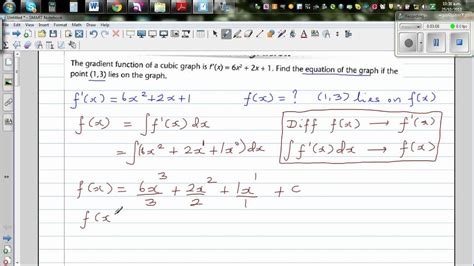 The gradient function of a cubic graph is f'(x) = 6x² + 2x + 1. Find the equation of the graph if the
point (1,3) lies on the graph.
f'(x) = 6x² + 2x + 1 f(x) = ? (1,3) lies on f(x)
f(x) = ∫f'(x) dx
= ∫(6x² + 2x¹ + 1x⁰) dx
Diff f(x) → f'(x)
∫f'(x) dx → f(x)
f(x) = 6x³/3 + 2x²/2 + 1x¹/1 + c
f(x